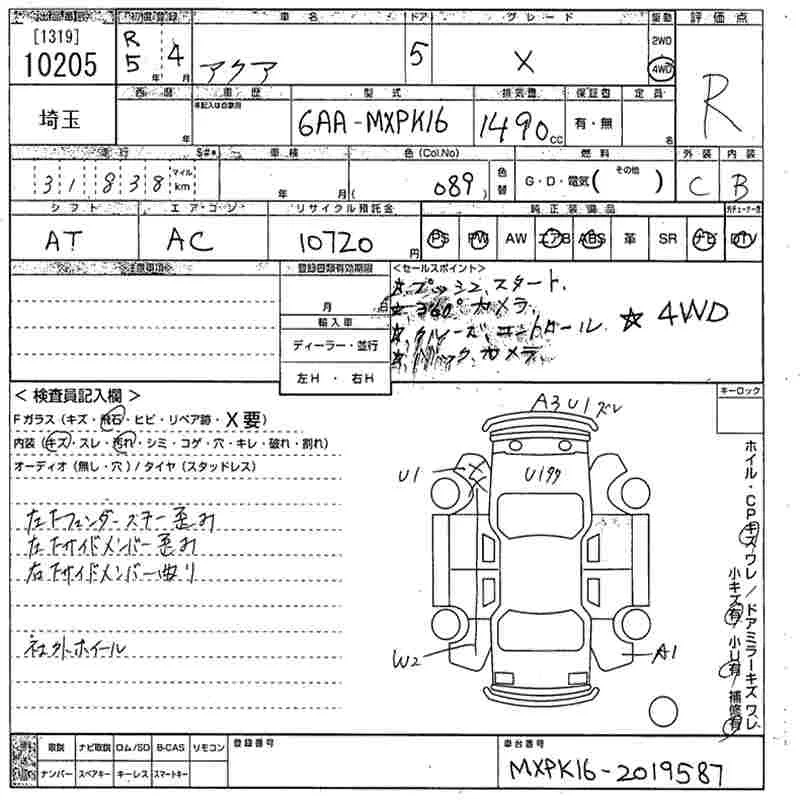 出品番号 初度登録 車名 ドア グレード 駆動 評価点
[1319]
10205
R5年 4月 アクア 5 X 2WD 4WD R
埼玉
西暦 車歴 型式 排気量 保証書 定員
年 未記入は自家用 6AA-MXPK16 1490cc 有・無 名
走行 S#* 車検 色(Col.No) 燃料 外装 内装
31838 マイル km 年 月 089 色替 G・D・電気( その他 ) C B
シフト エアコン リサイクル預託金 純正装備品
AT AC 10720円 PS PW AW エアB ABS 革 SR ナビ DTV
注意事項 登録書類有効期限 <セールスポイント>
月 日
輸入車
ディーラー・並行
左H・右H
☆プッシュスタート.
☆360°カメラ
☆クルーズコントロール. ☆4WD
☆バックカメラ.
<検査員記入欄> キーロック
Fガラス(キズ・飛石・ヒビ・リペア跡・X要)
内装(キズ・スレ・汚れ・シミ・コゲ・穴・キレ・破れ・割れ)
オーディオ(無し・穴)/タイヤ(スタッドレス)
左下フェンダーステー歪み
左下サイドメンバー歪み
右下サイドメンバー曲り
社外ホイール
A3 U1ズレ
U1
U1
W2
A1
ホイール・CPキズワレ/ドアミラーキズワレ
小キズ有 小U有 補修有
取説 ナビ取説 ロム/SD B-CAS リモコン 登録番号 車台番号
ナンバー スペアキー キーレス スマートキー
MXPK16-2019587